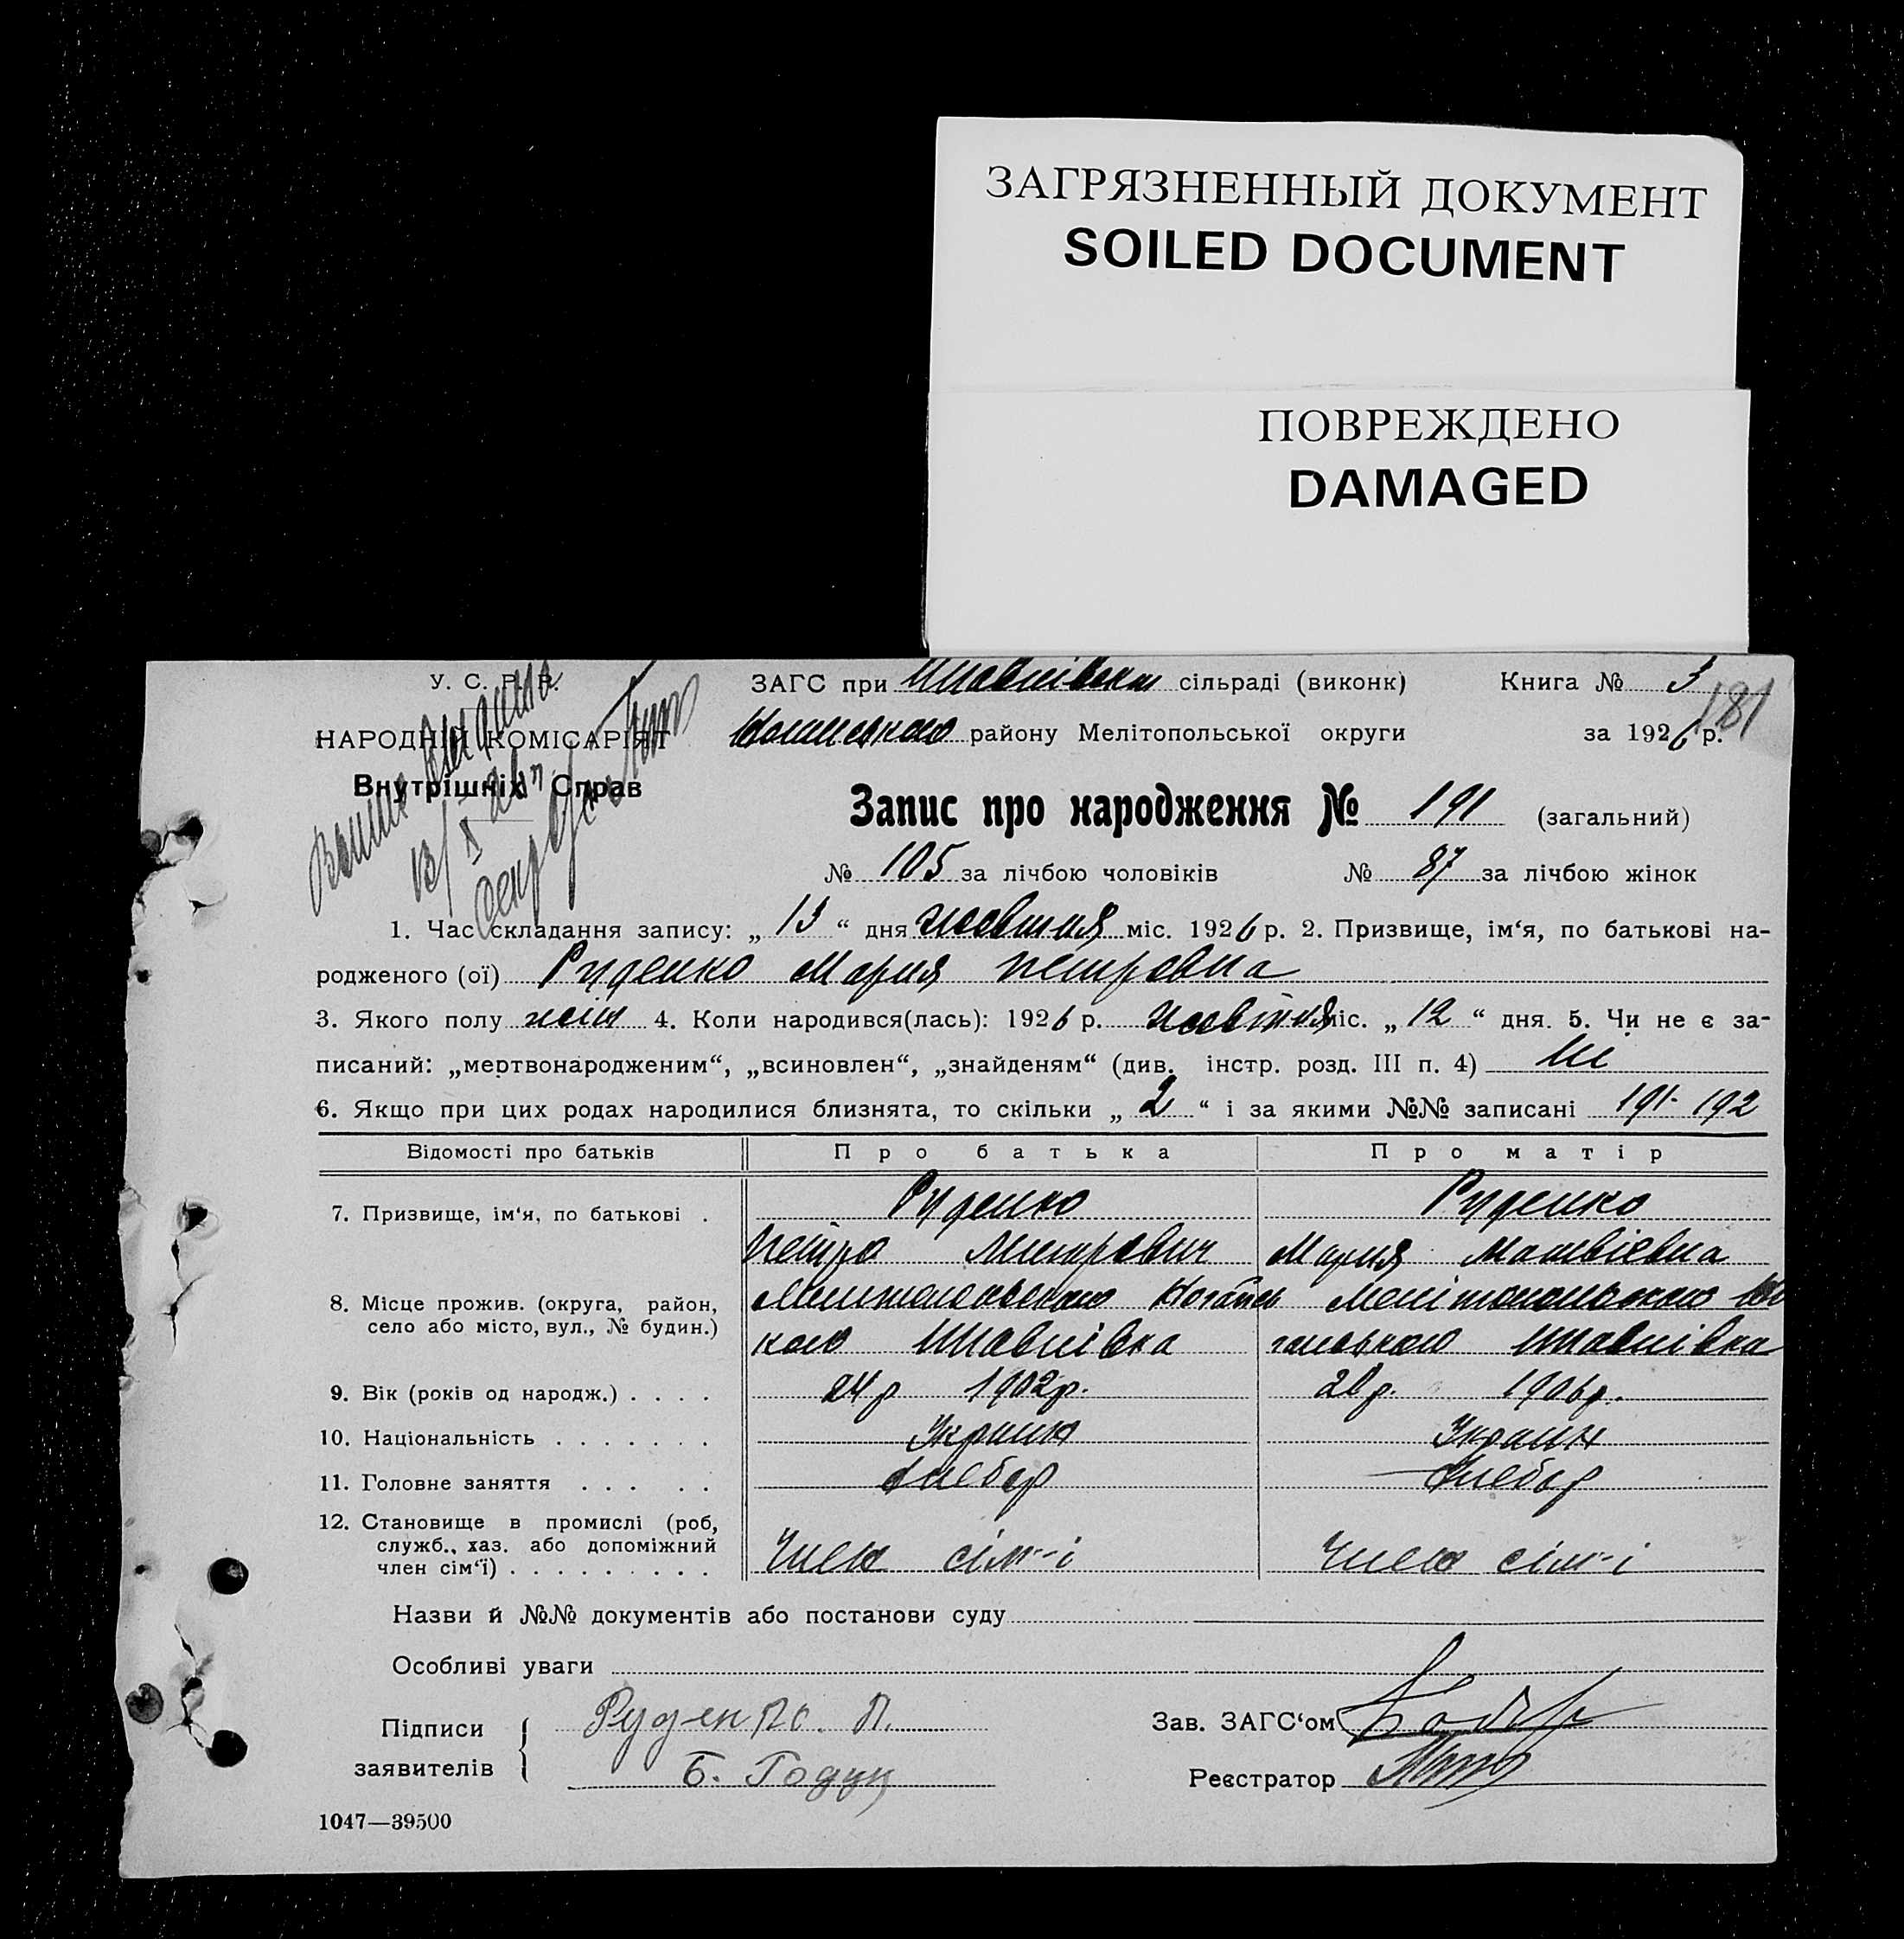 ЗАГРЯЗНЕННЫЙ ДОКУМЕНТ
SOILED DOCUMENT
ПОВРЕЖДЕНО
DAMAGED
У. С. Р. Р. ЗАГС при сільраді (виконк) Книга № 3
181
НАРОДНІЙ КОМІСАРІЯТ району Мелітопольської округи за 1926 р.
Внутрішніх Справ
Запис про народження № 191 (загальний)
№ 105 за лічбою чоловіків № 87 за лічбою жінок
1. Час складання запису: „ 13 “ дня жовтня міс. 1926 р. 2. Призвище, ім‘я, по батькові на-
родженого (ої) Руденко Мария Петровна
3. Якого полу жін 4. Коли народився(лась): 1926 р. жовтня міс. „ 12 “ дня. 5. Чи не є за-
писаний: „мертвонародженим“, „всиновлен“, „знайденям“ (див. інстр. розд. III п. 4) Ні
6. Якщо при цих родах народилися близнята, то скільки „ 2 “ і за якими №№ записані 191-192
Відомості про батьків Про батька Про матір
7. Призвище, ім‘я, по батькові . Руденко Руденко
Петро Митрович Мария Матвієвна
8. Місце прожив. (округа, район, село або місто, вул., № будин.) Мелітопольського
9. Вік (років од народж.) . . . . 24 р 1902 р. 20 р. 1906 р.
10. Національність . . . . . . . Украин Украин
11. Головне заняття . . . . . Хлебор Хлебор
12. Становище в промислі (роб,
служб., хаз. або допоміжний
член сім‘ї) . . . . . . . . . Член сім-і Член сім-і
Назви й №№ документів або постанови суду
Особливі уваги
Підписи заявителів { Руденко. П. Зав. ЗАГС‘ом
Реєстратор
1047—39500